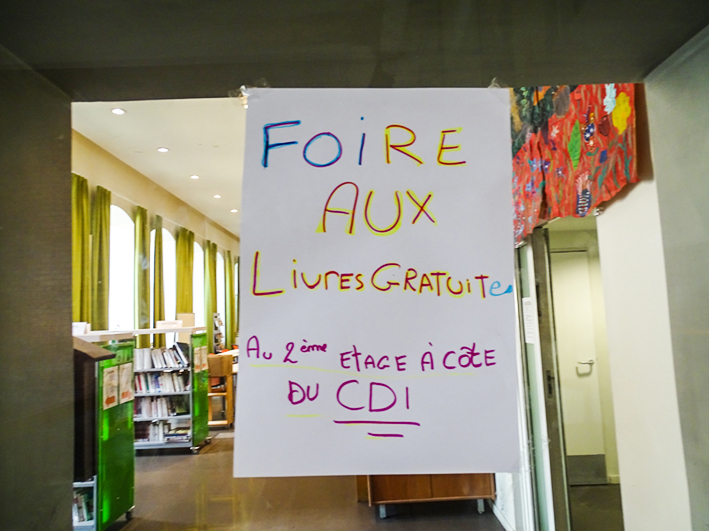 FOiRE
AUX
LiVRES GRATUITe
AU 2ème ETAGE À CÔTE
DU CDI